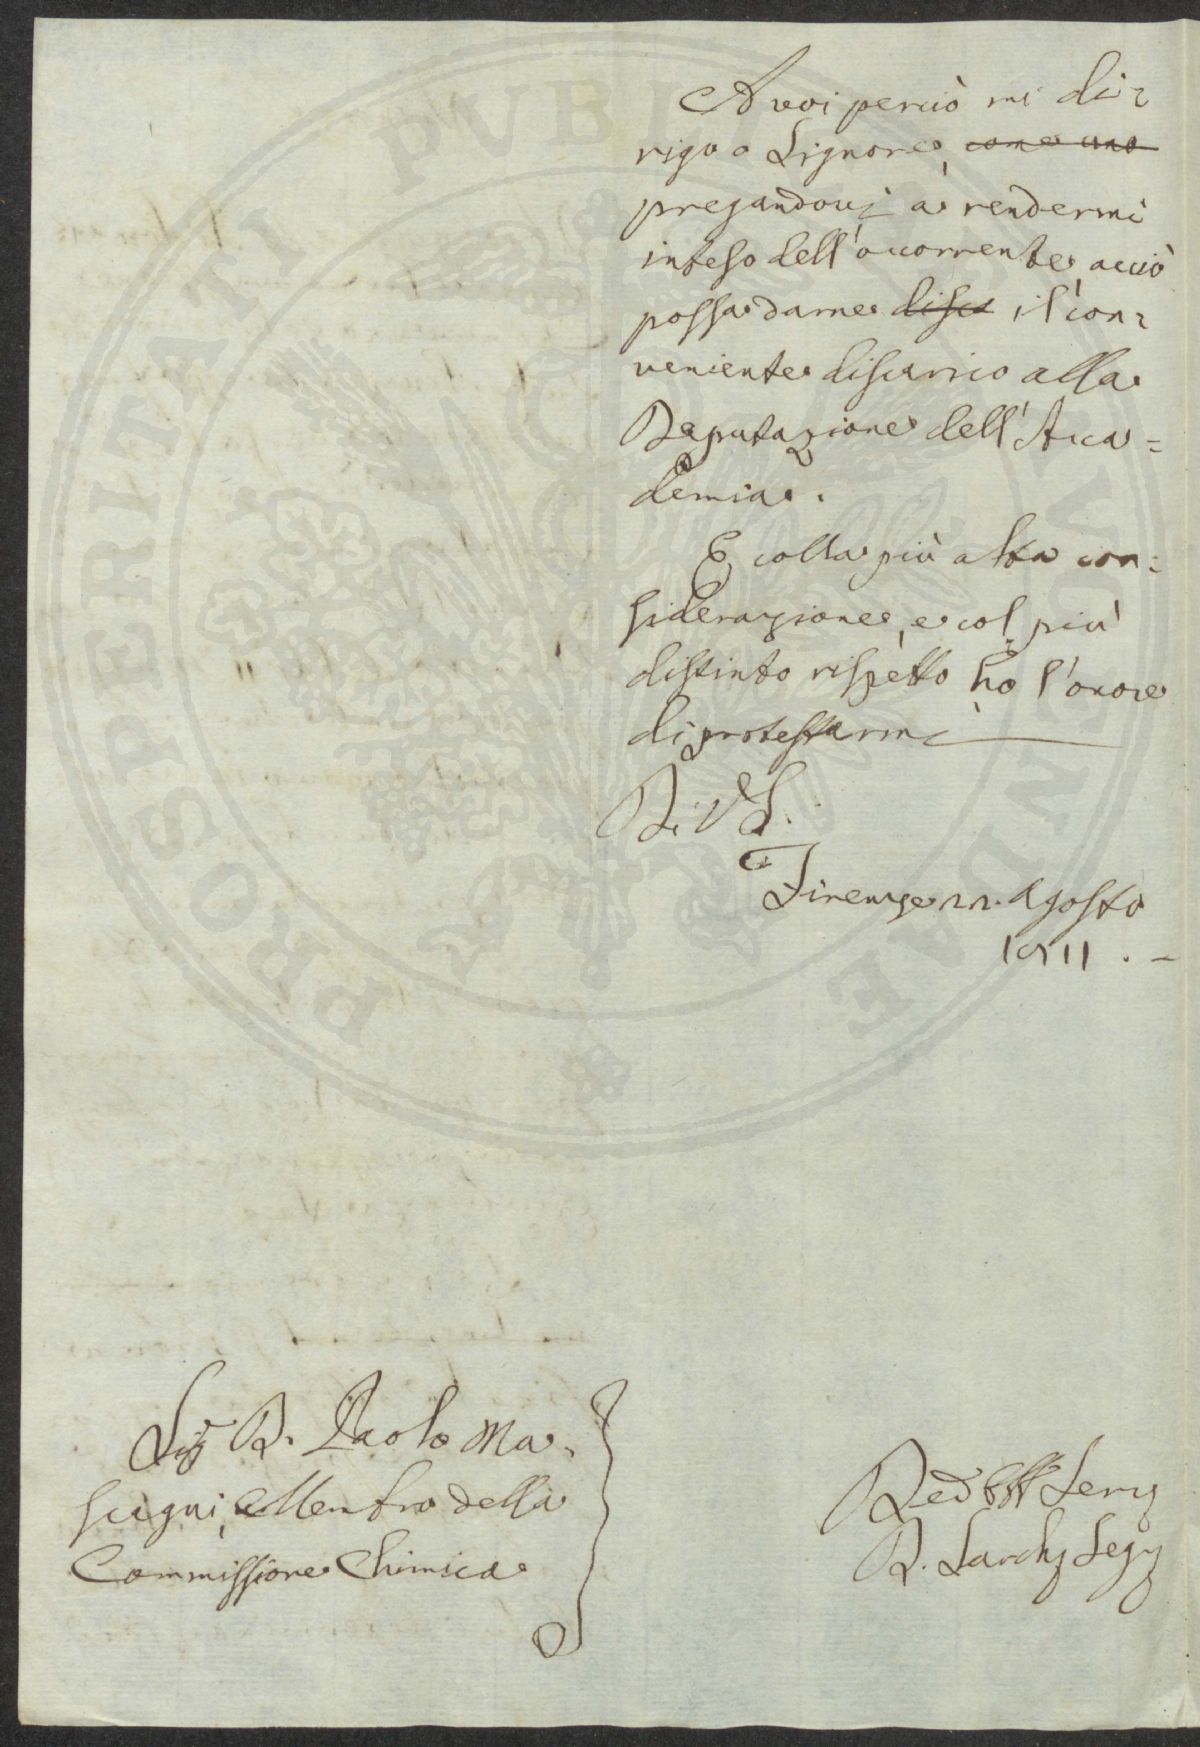 A voi perciò mi di=
rigo o Signore, come uno
pregandovi à rendermi
inteso dell'occorrente acciò
possa darne disca il con=
veniente discarico alla
Deputazione dell'Acca=
demia.
E colla più alta con=
siderazione, e col più
distinto rispetto hò l'onore
di protestarmi
D. V. S.
Firenze 22. Agosto
1811. -
Sig.r D. Paolo Ma=
scagni, Membro della
Commissione Chimica
D. Sarchj Segr
PROSPERITATI PUBLICAE AUGENDAE